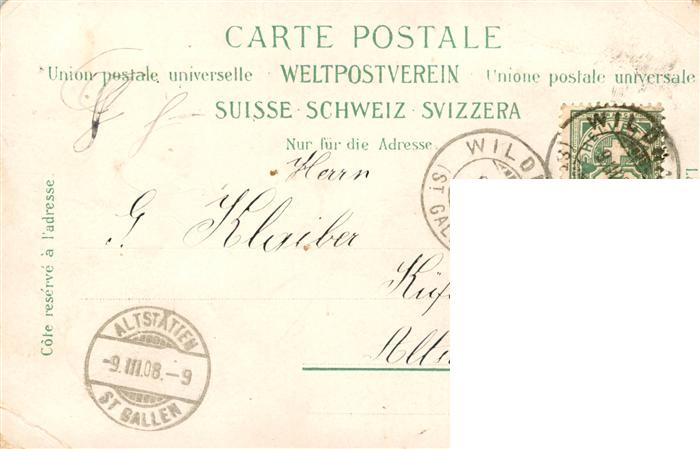 CARTE POSTALE
Union postale universelle · WELTPOSTVEREIN · Unione postale universale
SUISSE · SCHWEIZ · SVIZZERA
Nur für die Adresse.
Herrn
G. Klaiber
Côte réservé à l'adresse.
WILD
(ST GAL
WILD
ALTSTÄTTEN
-9.III.08.-9
ST GALLEN